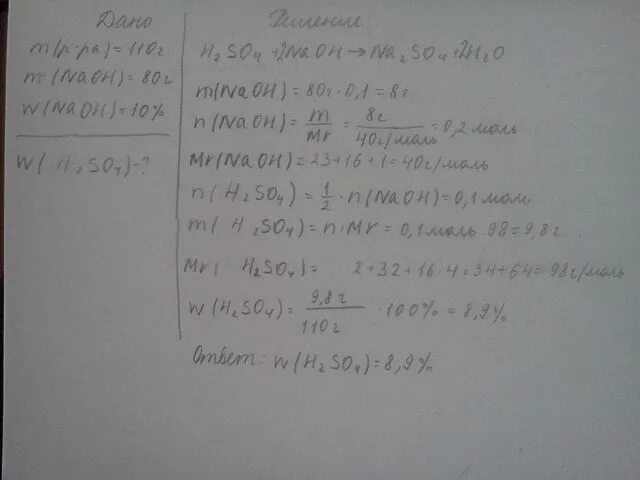 Дано
m(р-ра)=110г
m(NaOH)=80г
w(NaOH)=10%
w(H₂SO₄)-?
Решение:
H₂SO₄+2NaOH→Na₂SO₄+2H₂O
m(NaOH)=80г·0,1=8г.
n(NaOH)=m/Mr=8г/40г/моль=0,2 моль
Mr(NaOH)=23+16+1=40г/моль
n(H₂SO₄)=1/2·n(NaOH)=0,1 моль
m(H₂SO₄)=n·Mr=0,1моль·98=9,8г
Mr(H₂SO₄)=2+32+16·4=34+64=98г/моль
w(H₂SO₄)=9,8г/110г·100%=8,9%
Ответ: w(H₂SO₄)=8,9%